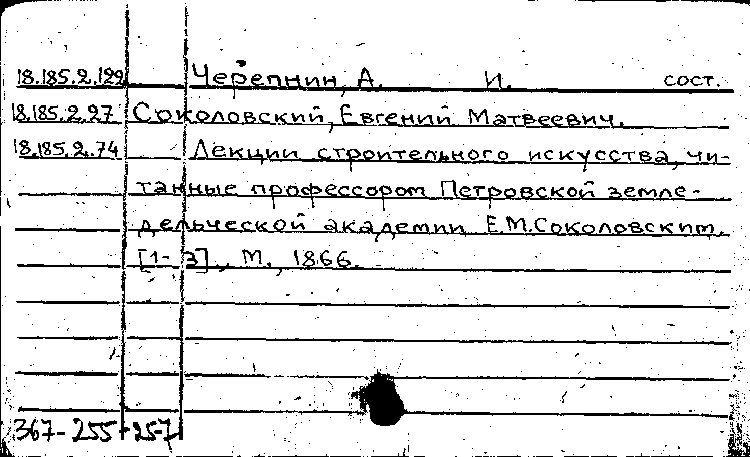 18.185.2.122 Черепнин, А. И. сост.
18.185.2.27 Соколовский, Евгений Матвеевич.
18.185.2.74 Лекции строительного искусства, чи-
танные профессором Петровской земле-
дельческой академии Е.М.Соколовским.
[1-3]., М., 1866.
367-255+257